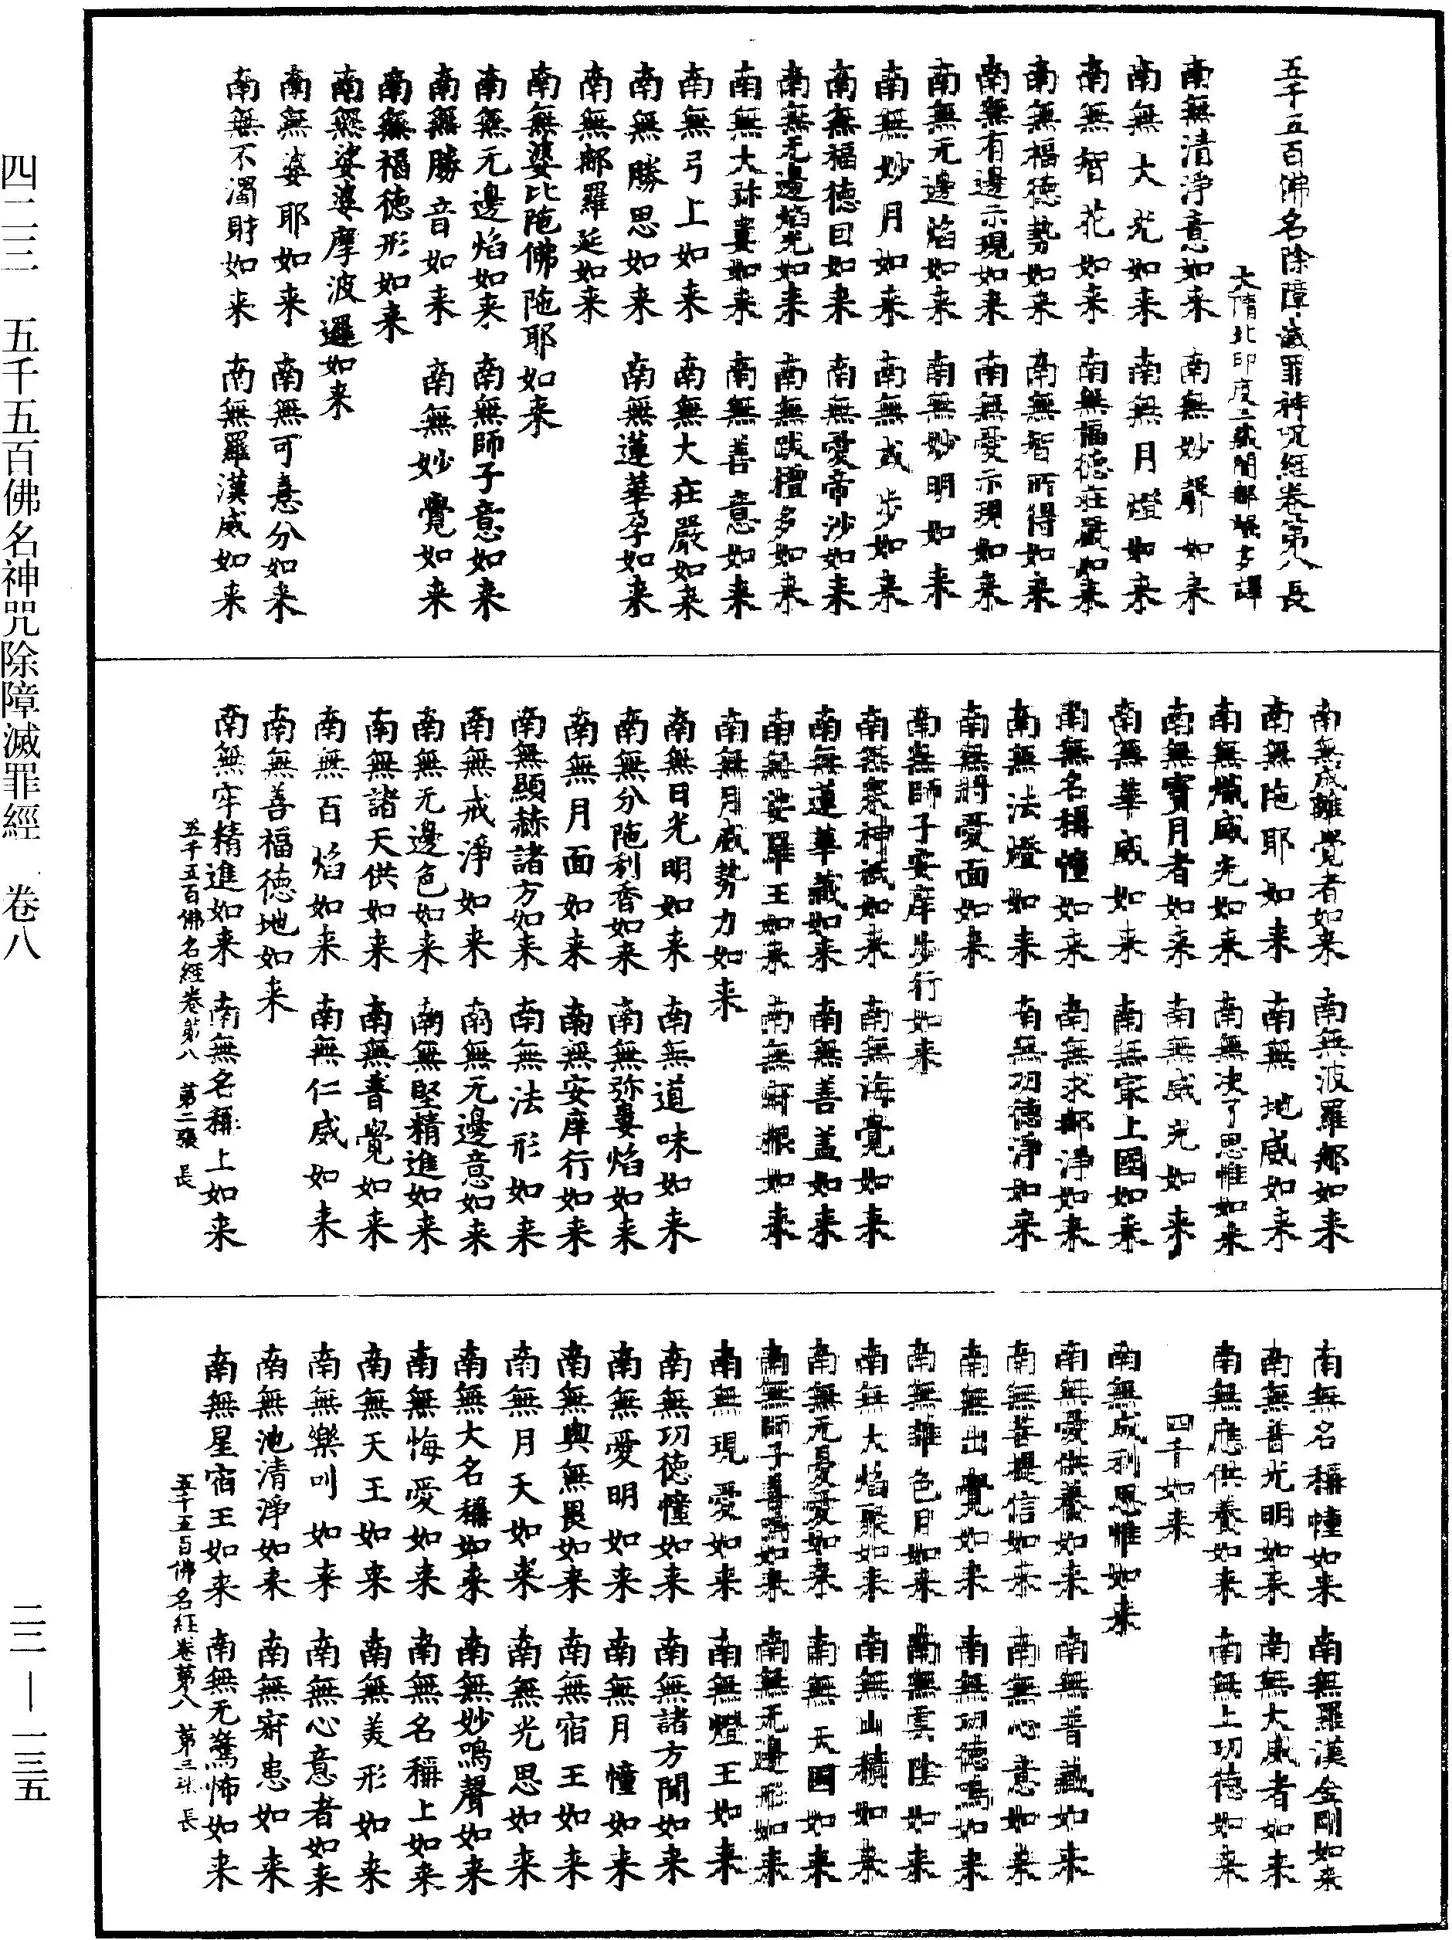 五千五百佛名除障滅罪神呪經卷第八 長
大隋北印度三藏闍那崛多譯
南無清淨意如来 南無妙聲如来
南無大光如来 南無月燈如来
南無智花如来 南無福德莊嚴如来
南無福德勢如来 南無智所得如来
南無有邊示現如来 南無愛示現如来
南無无邊焰如来 南無妙明如来
南無妙月如来 南無或步如来
南無福德田如来 南無愛帝沙如来
南無无邊焰光如来 南無跋檀多如来
南無大弥婁如来 南無善意如来
南無弓上如来 南無大莊嚴如来
南無勝思如来 南無蓮華孕如来
南無那羅延如来
南無婆比陁佛陁耶如来
南無无邊焰如来 南無師子意如来
南無勝音如来 南無妙覺如来
南無福德形如来
南無婆婆摩波邏如来
南無婆耶如来 南無可意分如来
南無不濁財如来 南無羅漢威如来
南無離覺者如来 南無波羅那如来
南無陁耶如来 南無地威如来
南無熾威光如来 南無决了思惟如来
南無寶月者如来 南無威光如来
南無華威如来 南無寂上國如来
南無名稱幢如来 南無求那淨如来
南無法燈如来 南無功德淨如来
南無愛面如来
南無師子安庠步行如来
南無衆神祇如来 南無海覺如来
南無蓮華藏如来 南無善盖如来
南無娑羅王如来 南無如来
南無月威勢力如来
南無日光明如来 南無道味如来
南無分陁利香如来 南無弥婁焰如来
南無月面如来 南無安庠行如来
南無顯赫諸方如来 南無法形如来
南無戒淨如来 南無无邊意如来
南無无邊色如来 南無堅精進如来
南無諸天供如来 南無普覺如来
南無百焰如来 南無仁威如来
南無善福德地如来
南無牢精進如来 南無名稱上如来
五千五百佛名經卷第八 第二張 長
南無名稱幢如来 南無羅漢金剛如来
南無普光明如来 南無大威者如来
南無應供養如来 南無上功德如来
四千如来
南無成利思惟如来
南無愛供養如来 南無普藏如来
南無菩提信如来 南無心意如来
南無出覺如来 南無功德如来
南無離色月如来 南無雲陰如来
南無大焰聚如来 南無山積如来
南無无憂愛如来 南無天國如来
南無師子善如来 南無无邊形如来
南無現愛如来 南無燈王如来
南無功德憧如来 南無諸方聞如来
南無愛明如来 南無月憧如来
南無與無畏如来 南無宿王如来
南無月天如来 南無光思如来
南無大名稱如来 南無妙鳴聲如来
南無悔愛如来 南無名稱上如来
南無天王如来 南無美形如来
南無樂叫如来 南無心意者如来
南無池清淨如来 南無㝷恚如来
南無星宿王如来 南無无驚怖如来
五千五百佛名經卷第八 第三張 長
四二三 五千五百佛名神咒除障滅罪經 卷八
二二 — 一三五